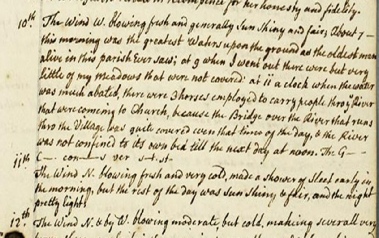 recompence for her honesty and fidelity.
10th The Wind W. blowing fresh and generally Sun Shiny and fair; About 7 —
this morning was the greatest Waters upon the ground as the oldest man
alive in this parish Ever saw; at 9 when I went out there were but very
little of my meadows that were not covered at 11 a clock when the water
was much abated, there were 3 horses employed to carry people thro' ye River
that were coming to Church, because the Bridge over the River that runs
thro the Village was quite covered even that time of the day, & the River
was not confined to its own bed till the next day at noon. The G—
C—. con——s ver s–t. st–
11th The Wind N. blowing fresh and very cold, made a Shower of Sleet early in
the morning, but the rest of the Day was Sun Shiny & fair, and the night
pretty light
12th The Wind N. & by W. blowing moderate, but cold, making severall very